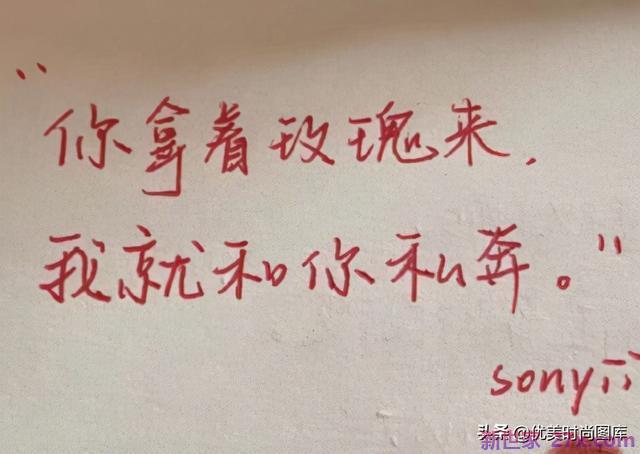 “你拿着玫瑰来，
我就和你私奔。”
sony
头条 @优美时尚图库
新世家 21x.com